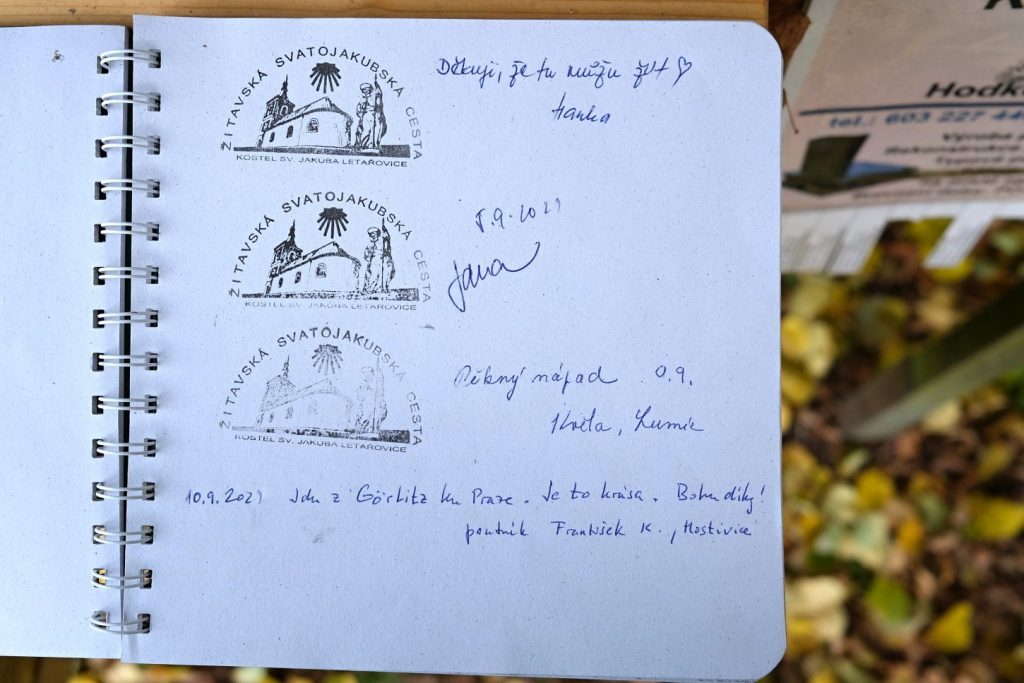 ŽITAVSKÁ SVATOJAKUBSKÁ CESTA
KOSTEL SV. JAKUBA LETAŘOVICE
Děkuji, že tu můžu žít ♡
Hanka
ŽITAVSKÁ SVATOJAKUBSKÁ CESTA
KOSTEL SV. JAKUBA LETAŘOVICE
8.9.2021
Jana
ŽITAVSKÁ SVATOJAKUBSKÁ CESTA
KOSTEL SV. JAKUBA LETAŘOVICE
Pěkný nápad 9.9.
Květa, Lumír
10.9.2021 Jdu z Görlitz ku Praze. Je to krása. Bohu díky!
poutník František K., Hostivice
Hodk
tel.: 603 227 44
Výroba
Rekonstrukce